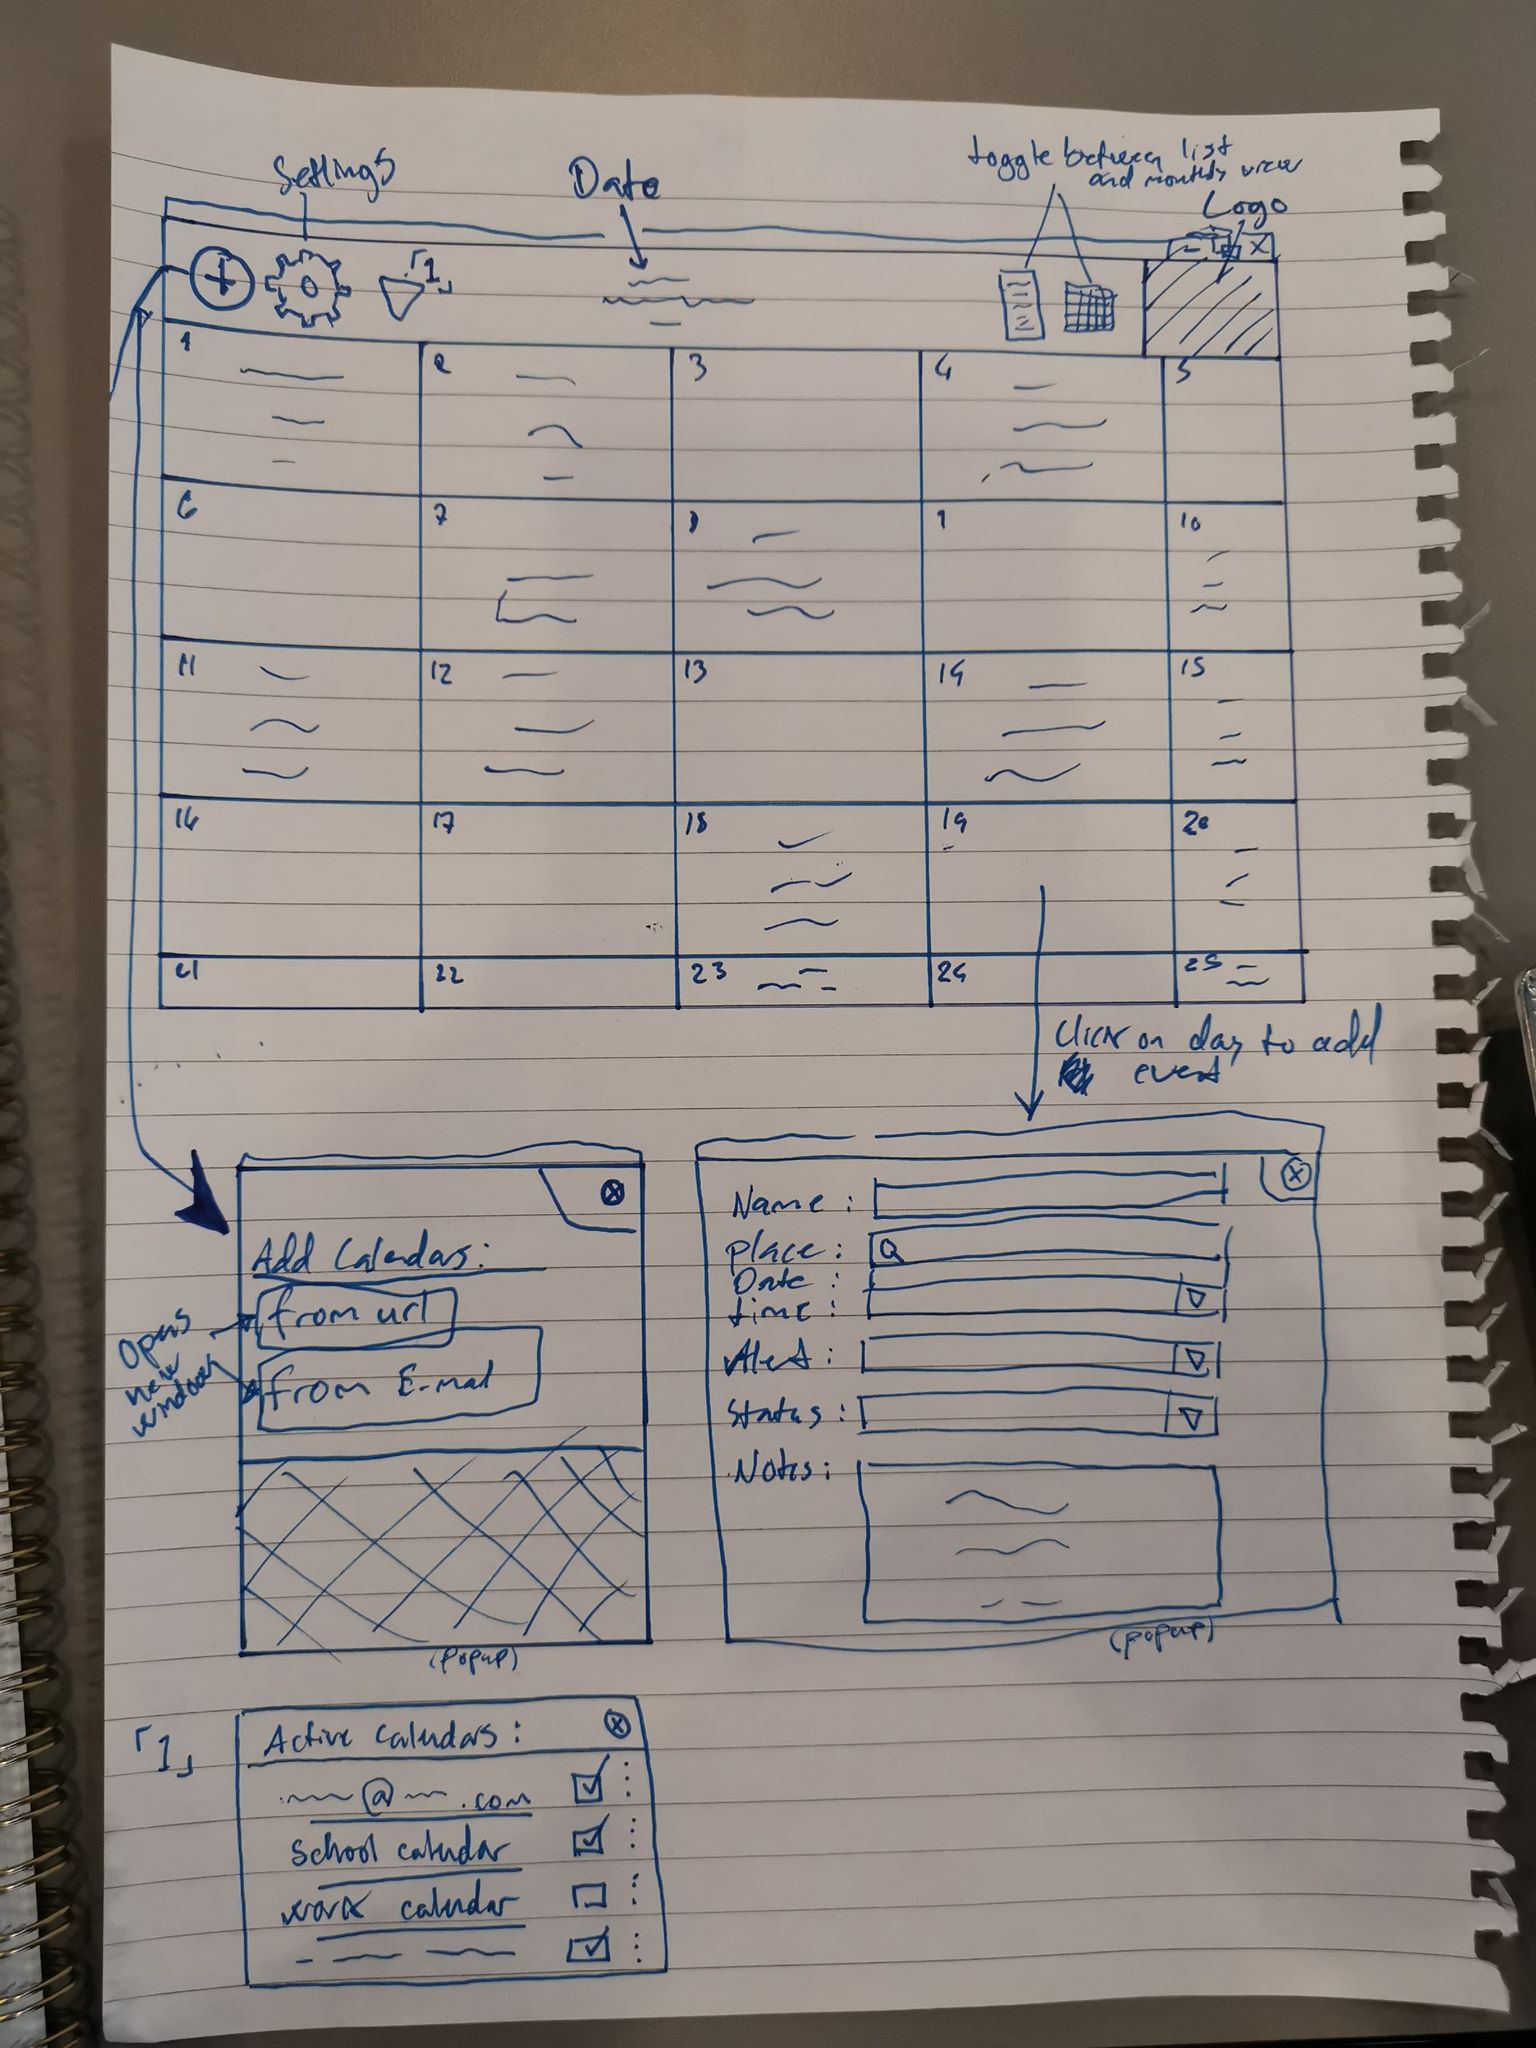 Settings
Date
toggle between list
and monthly view
Logo
「1」
1 2 3 4 5
6 7 8 9 10
11 12 13 14 15
16 17 18 19 20
21 22 23 24 25
Click on day to add
event
Add Calendars:
from url
from E-mail
Opens
new
window
(popup)
Name:
Place:
Date
time:
Alert:
Status:
Notes:
(popup)
「1」
Active Calendars:
@ .com
School calendar
work calendar